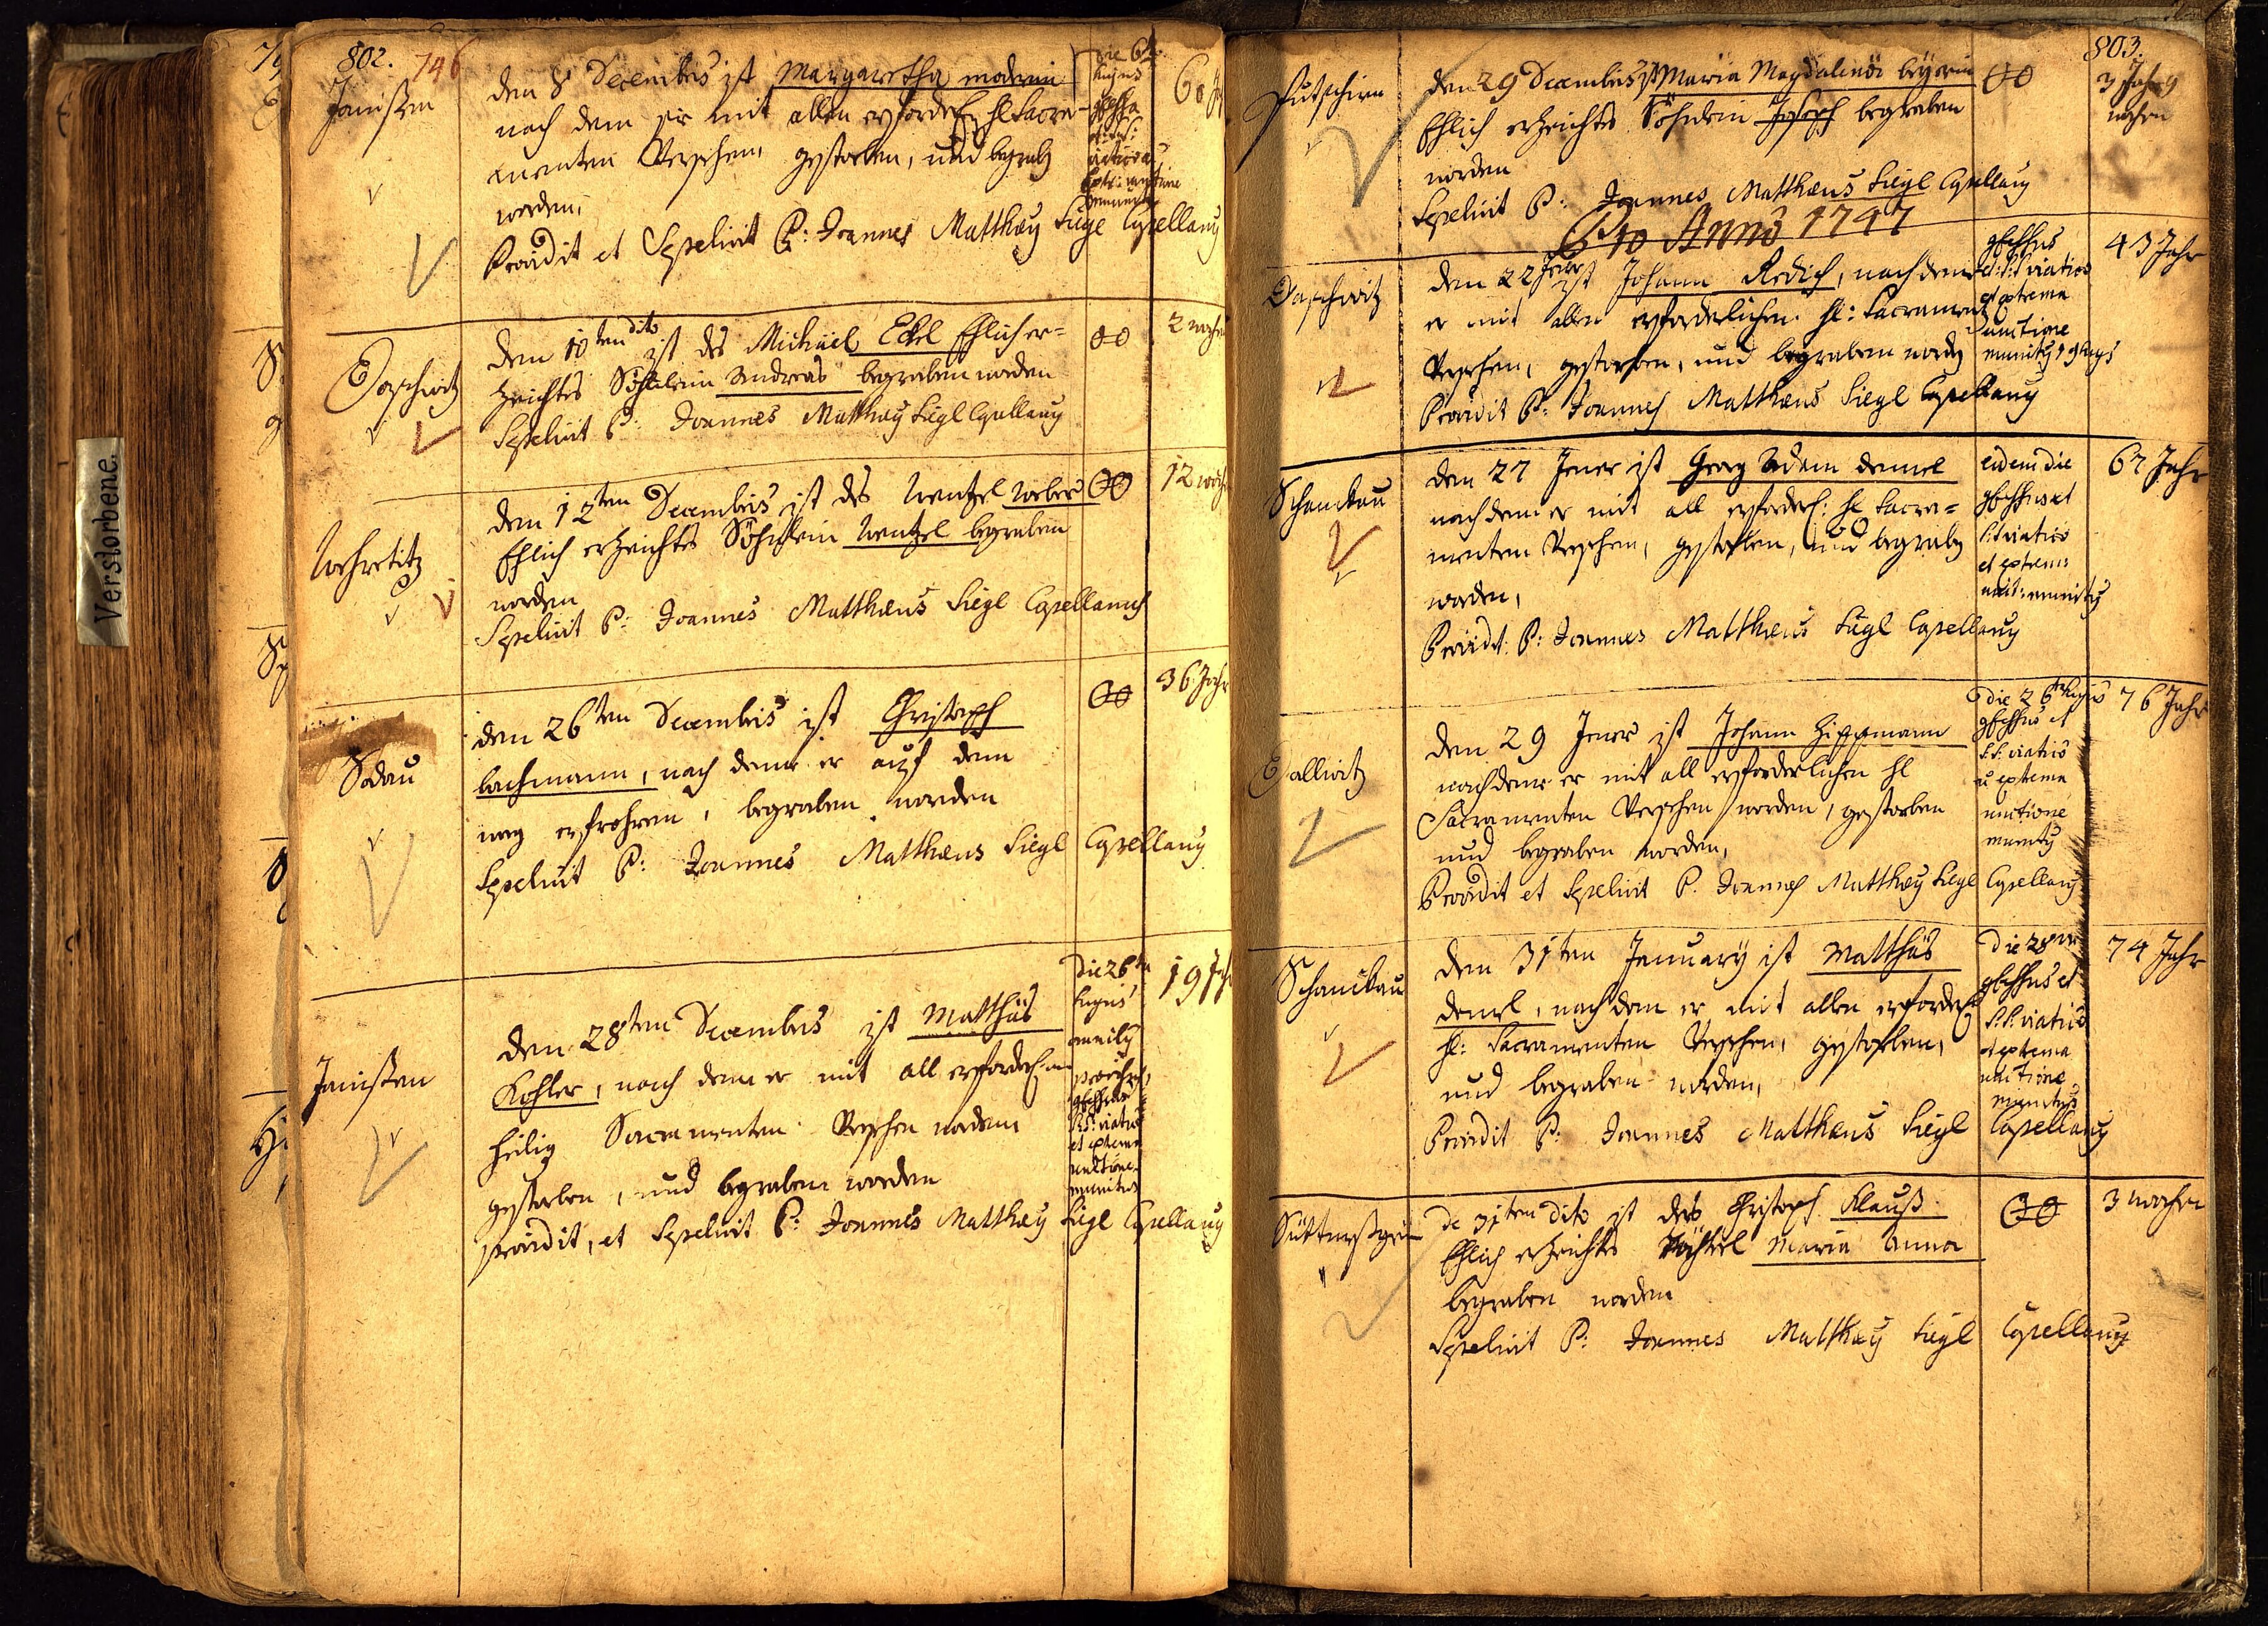 Verstorbene.
802. 746
Janißen
den 8 Decembris ist Margaretha moderin
nach dem sie mit allen erforderl hl Sacra-
menten Versehen, gestorben, und begrab
worden,
Providit et Sepelivit P: Joannes Matthæy Siegl Capellany
die 6
hujus
viatico
Extr: unctione
60 J
Daschwitz
den 10ten dito ist des Michäel Eckl Ehlich er=
zeichtes Söhnlein Andreas begraben worden
Sepelivit P: Joannes Matthæy Siegl Capellany
00
2 wochen
Weheditz
den 12ten Decembris ist des Wentzel Webers
Ehlich erzeichtes Söhnlein Wentzel begraben
worden
Sepelivit P: Joannes Matthæus Siegl Capellanus
00
12 woch
Sodau
den 26ten Decembris ist Christoph
lachmann, nach deme er auf dem
weg erfrohren, begraben worden
Sepelivit P: Joannes Matthæus Siegl Capellany
00
36 Jahr
Janißen
den 28ten Decembris ist Matthäs
Kohler, nach dem er mit all erforderl
heilig Sacramenten Versehen worden
gestorben, und begraben worden
providit, et Sepelivit P: Joannes Matthæy Siegl Capellany
Die 26
hujus
S.S. viatico
et extrema
unctione
munitus
19 J
803.
Putschirn
den 29 Decembris ist Maria Magdalenä beyerin
Ehlich erzeichtes Söhnlein Joseph begraben
worden
Sepelivit P: Joannes Matthæus Siegl Capellany
00
3 Jahr 9
wochen
Pro Anno 1747
Daschwitz
den 22 Jener ist Johann Redich, nach deme
er mit allen erforderlichen hl: Sacrament
Versehen, gestorben, und begraben word
Providit P: Joannes Matthæus Siegl Capellany
viatico
et extrema
unctione
munity 19 hujs
43 Jahr
Schanckau
den 27 Jener ist Georg Adam demel
nach dem er mit all erforderl: hl Sacra=
menten Versehen, gestorben, und begrab
worden,
Providit: P: Joannes Matthæus Siegl Capellany
eidem die
S: viatico
et extrema
unct: munity
67 Jahr
Dallwitz
den 29 Jener ist Johann Hippmann
nach deme er mit all erforderlichen hl
Sacramenten Versehen worden, gestorben
und begraben worden,
Providit et Sepelivit P. Joannes Matthæy Siegl Capellany
die 26 hujus
S.S. viatico
et extrema
unctione
munity
76 Jahr
Schanckau
den 31ten January ist Matthäs
demel, nach dem er mit allen erforderl
hl: Sacramenten Versehen, gestorben,
und begraben worden,
Providit P: Joannes Matthæus Siegl Capellany
Die 28
S.S. viatico
et extrema
unctione
munitus
74 Jahr
Süttmeßgrün
de 31ten dito ist des Christoph Klauß
Ehlich erzeichtes Töchterl Maria Anna
begraben worden
Sepelivit P: Joannes Matthæy Siegl Capellany
00
3 wochen